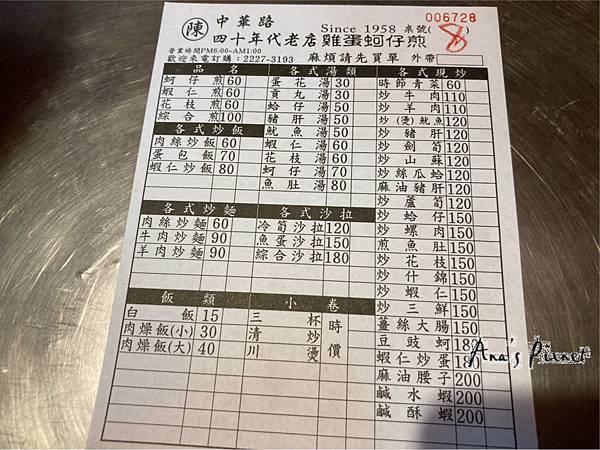 陳 中華路 Since 1958 桌號( 8 ) 006728
四十年代老店雞蛋蚵仔煎
營業時間PM6:00~AM1:00
歡迎來電訂購:2227-3193 麻煩請先買單 外帶
品名
蚵仔煎 60
蝦仁煎 60
花枝煎 60
綜合煎 100
各式炒飯
肉絲炒飯 60
蛋包飯 70
蝦仁炒飯 80
各式炒麵
肉絲炒麵 60
牛肉炒麵 90
羊肉炒麵 90
飯類
白飯 15
肉燥飯(小) 30
肉燥飯(大) 40
各式湯類
蛋花湯 30
貢丸湯 30
蛤仔湯 50
豬肝湯 50
魷魚湯 50
蝦仁湯 60
花枝湯 60
蚵仔湯 70
魚肚湯 80
各式沙拉
冷筍沙拉 120
魚蛋沙拉 150
綜合沙拉 180
小卷
三杯 時價
清炒
川燙
各式現炒
時節青菜 60
炒牛肉 110
炒羊肉 110
炒(燙)魷魚 120
炒豬肝 120
炒劍筍 120
炒山蘇 120
炒絲瓜蛤 120
麻油豬肝 120
炒蘆筍 120
炒蛤仔 150
炒螺肉 150
煎魚肚 150
炒花枝 150
炒什錦 150
炒蝦仁 150
炒三鮮 150
薑絲大腸 150
豆豉蚵 180
蝦仁炒蛋 180
麻油腰子 200
鹹水蝦 200
鹹酥蝦 200
Ana's Planet